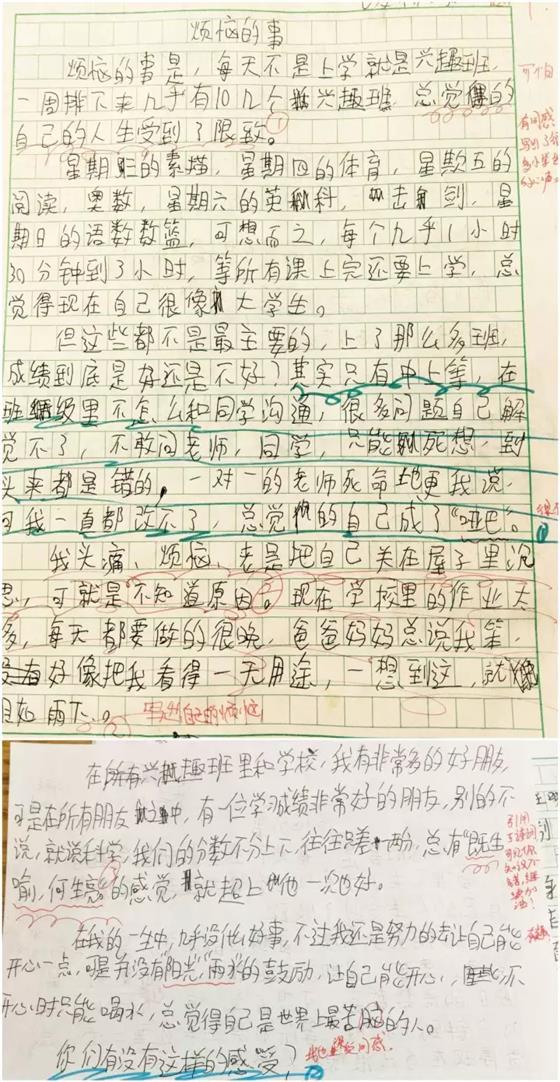 烦恼的事
烦恼的事是，每天不是上学就是兴趣班，
一周排下来几乎有10几个兴趣班，总觉得的
自己的人生受到了限致。
星期三的素描，星期四的体育，星期五的
阅读，奥数，星期六的英科，击剑，星
期日的语数数篮，可想而之，每个几乎1小时
30分钟到3小时，等所有课上完还要上学，总
觉得现在自己很像大学生。
但这些都不是最主要的，上了那么多班，
成绩到底是好还是不好？其实只有中上等，在
班级里不怎么和同学沟通，很多问题自己解
觉不了，不敢问老师，同学，只能死想，到
头来都是错的，一对一的老师死命地更我说，
可我一直都改不了，总觉的自己成了“哑巴”。
我头痛、烦恼、老是把自己关在屋子里沉
思，可就是不知道原因。现在学校里的作业太
多，每天都要做的很晚，爸爸妈妈总说我笨，
好像把我看得一无用途，一想到这，就
目如雨下。
写出自己的烦恼
在所有兴趣班里和学校，我有非常多的好朋友，
可是在所有朋友之中，有一位学习成绩非常好的朋友，别的不
说，就说科学，我们的分数不分上下，往往只差一两分，总有“既生
喻，何生亮”的感觉，就超上他一次也好。
在我的一生中，几乎没什么好事，不过我还是努力的去让自己能
开心一点，可是并没有“阳光”“雨水”的鼓励，让自己能开心，不
开心时只能喝水，总觉得自己是世界上最苦脑的人。
你们有没有这样的感受？